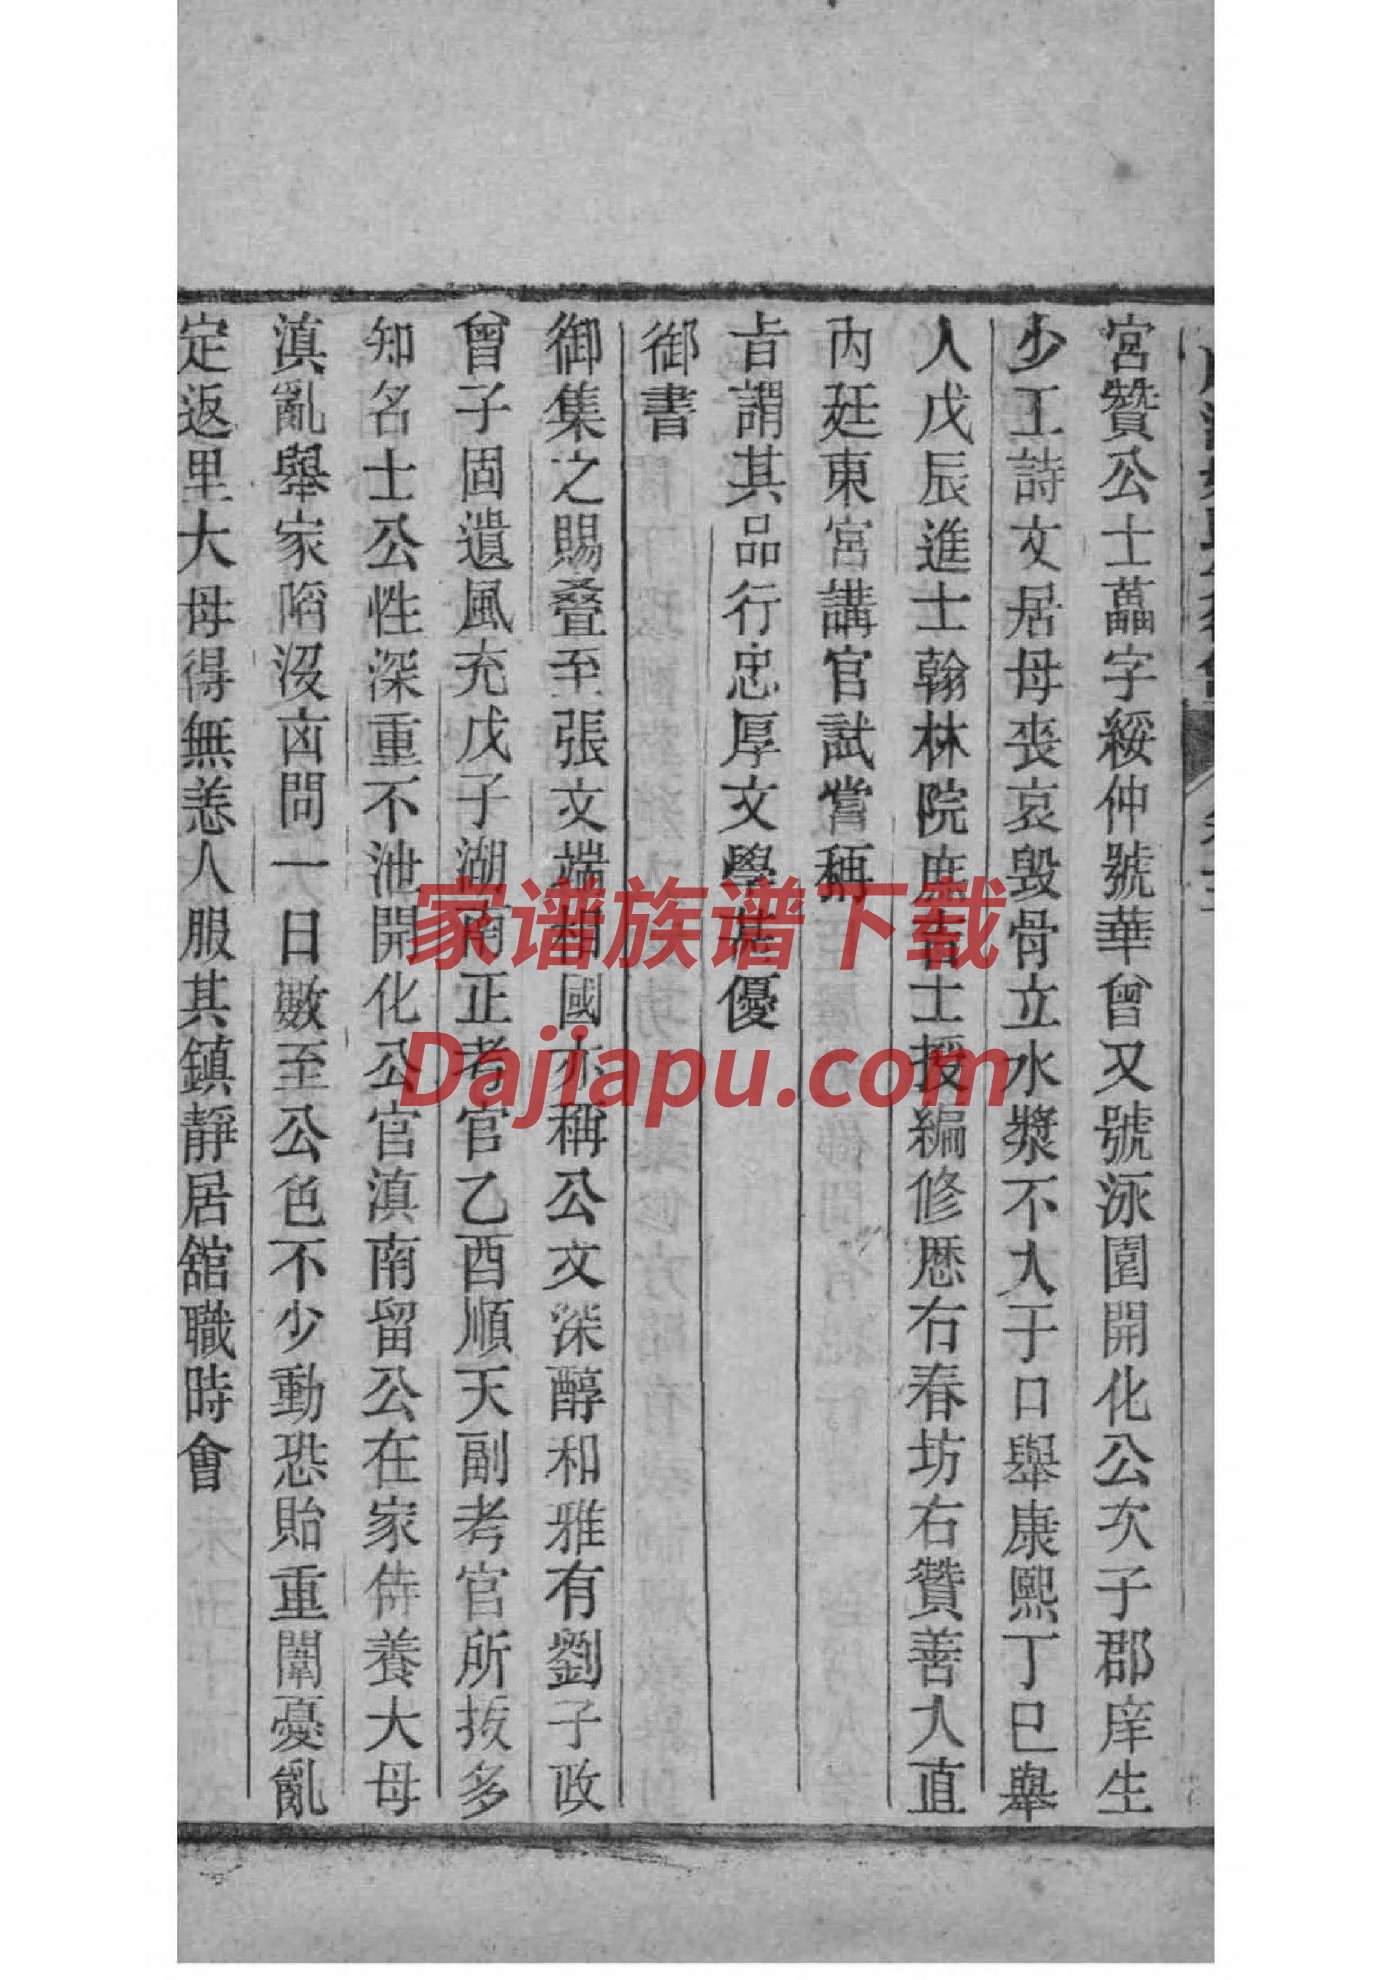 宮贊公士藟字綏仲號華曾又號泳園開化公次子郡庠生
少工詩文居母喪哀毁骨立水漿不入于口舉康熙丁巳舉
人戊辰進士翰林院庶吉士授編修歷右春坊右贊善入直
內廷東宮講官試嘗稱
旨謂其品行忠厚文學甚優
御書
御集之賜叠至張文端相國亦稱公文深醇和雅有劉子政
曾子固遺風充戊子湖南正考官乙酉順天副考官所拔多
知名士公性深重不泄開化公官滇南留公在家侍養大母
滇亂舉家陷沒凶問一日數至公色不少動恐貽重闈憂亂
定返里大母得無恙人服其鎮靜居舘職時會
家谱族谱下载
Dajiapu.com